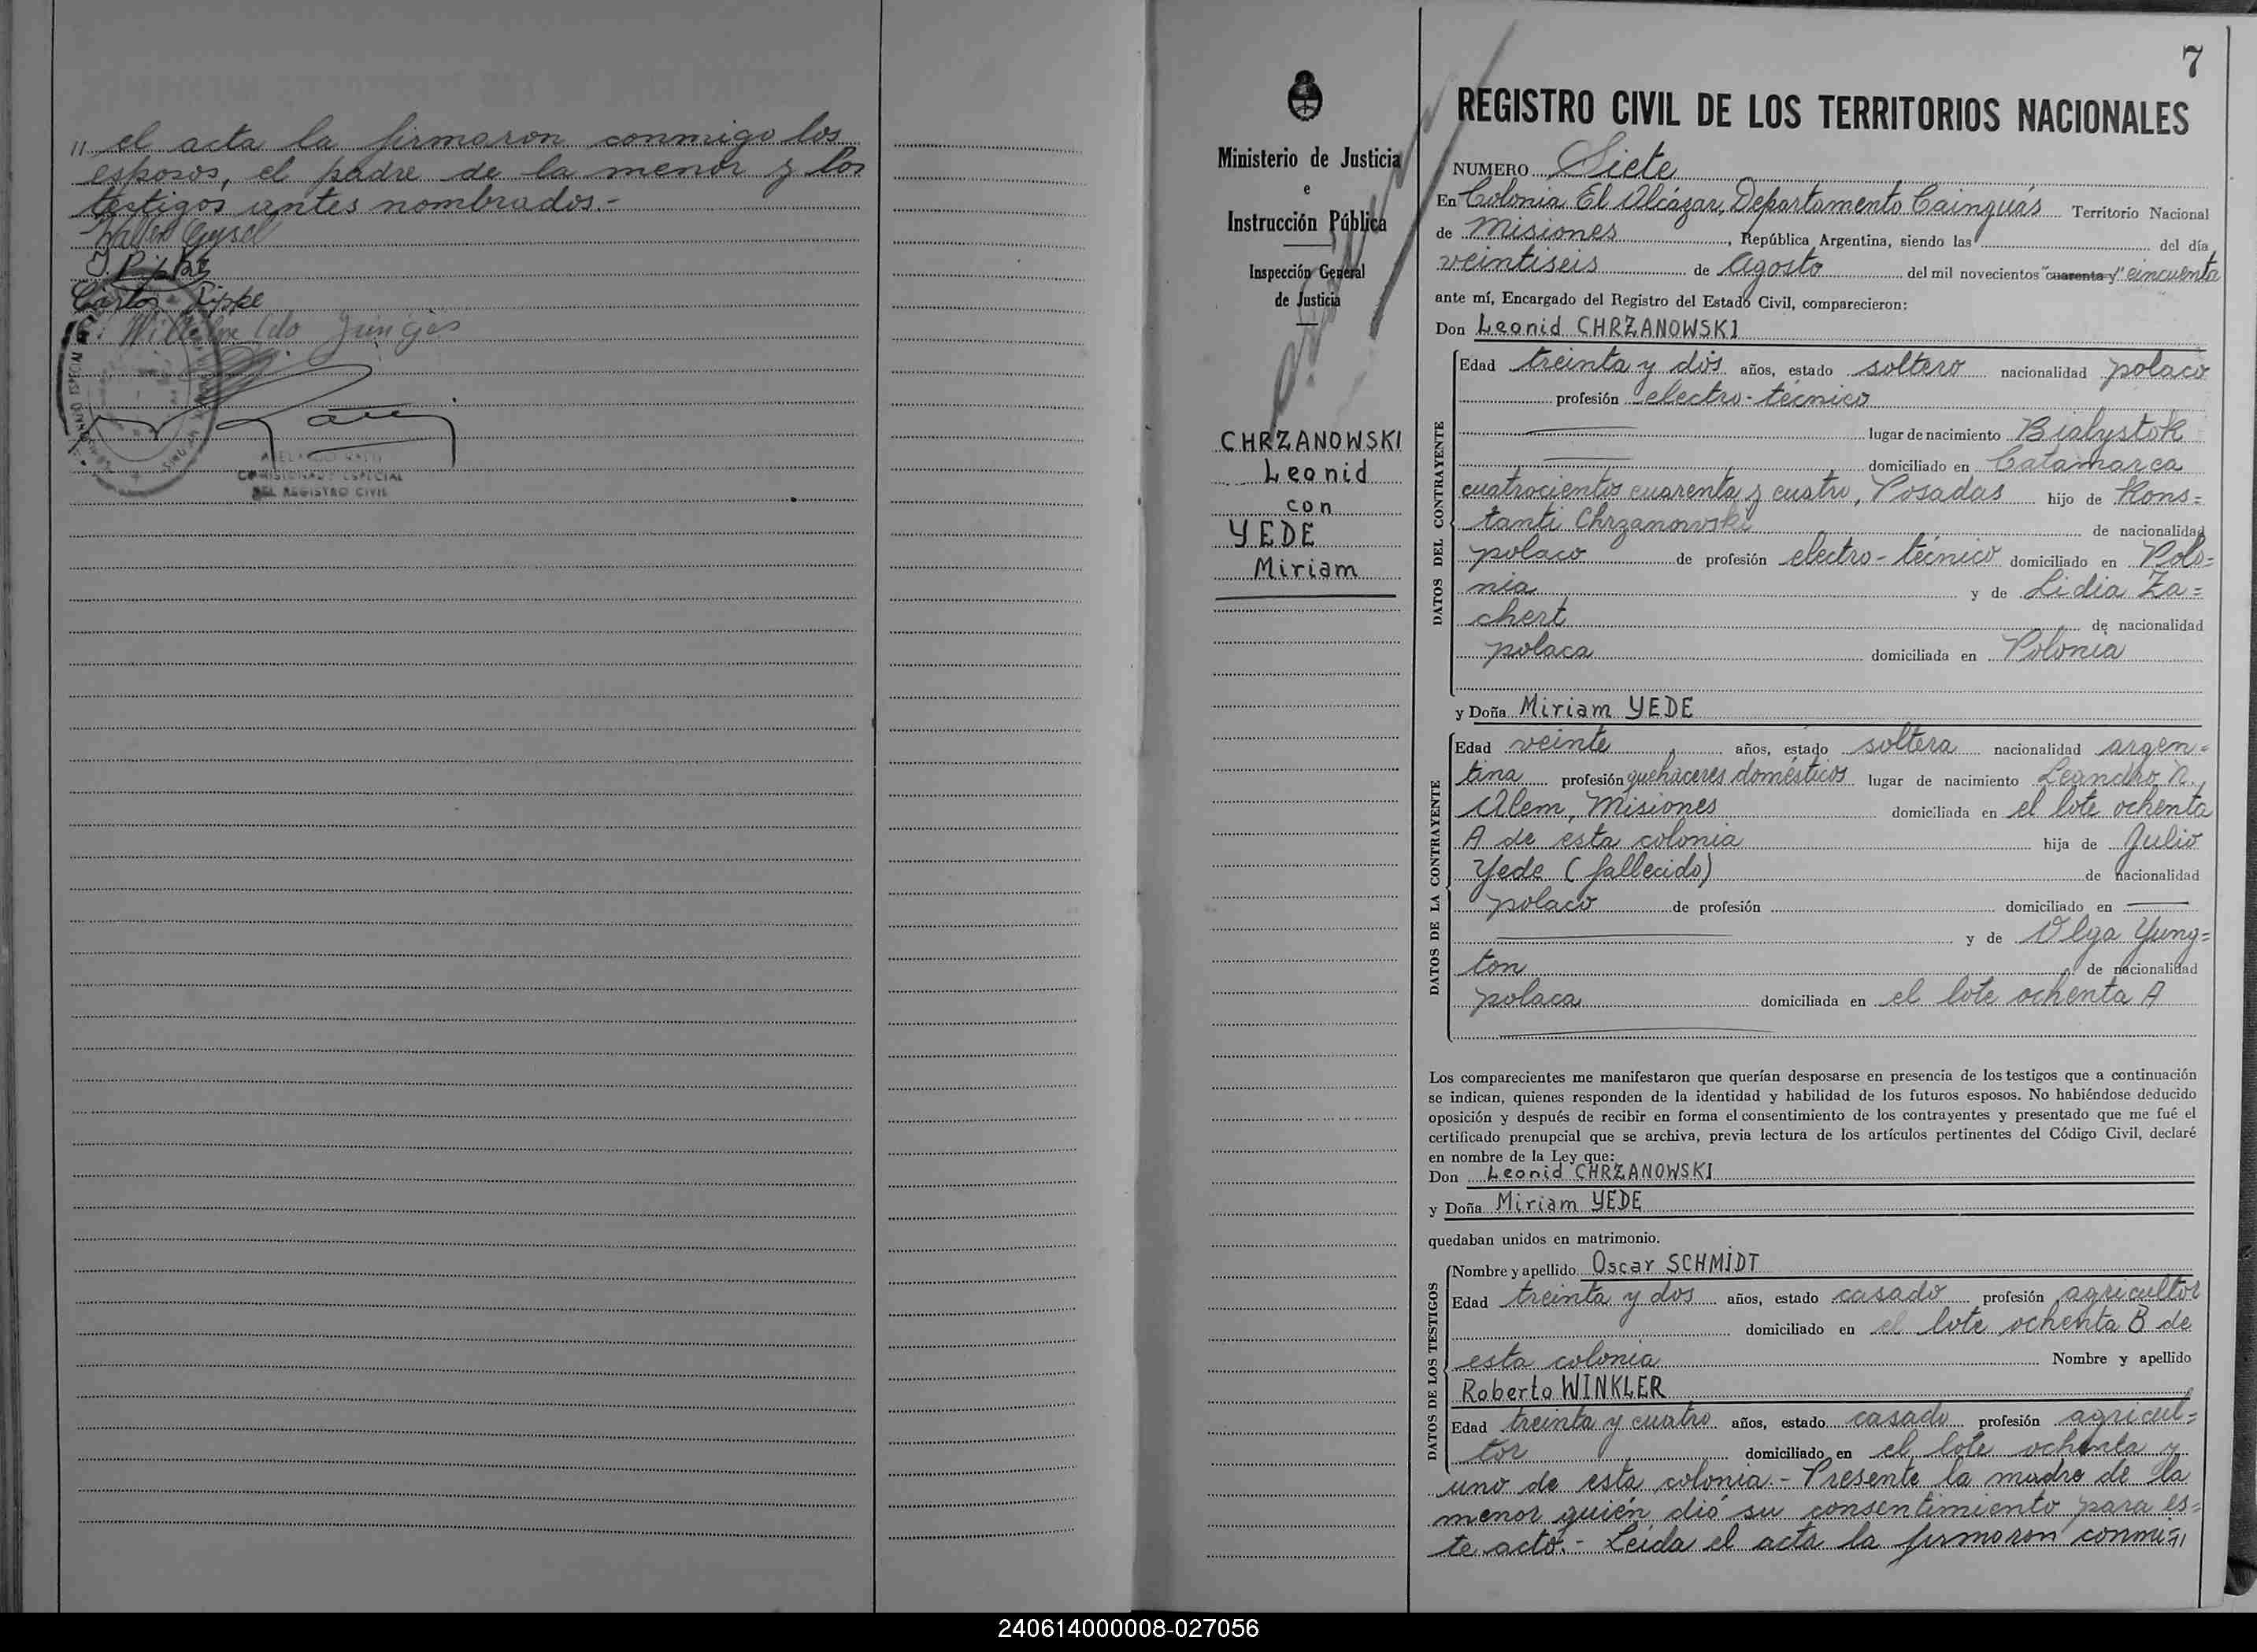 " el acta la firmaron conmigo los
esposos, el padre de la menor y los
testigos antes nombrados.-
Carlos Pipke
COMISIONADO ESPECIAL
DEL REGISTRO CIVIL
Ministerio de Justicia
e
Instrucción Pública
Inspección General
de Justicia
CHRZANOWSKI
Leonid
con
YEDE
Miriam
7
REGISTRO CIVIL DE LOS TERRITORIOS NACIONALES
NUMERO Siete
En Colonia El Alcázar, Departamento Cainguás Territorio Nacional
de Misiones, República Argentina, siendo las del día
veintiseis de Agosto del mil novecientos "cuarenta y" cincuenta
ante mí, Encargado del Registro del Estado Civil, comparecieron:
Don Leonid CHRZANOWSKI
DATOS DEL CONTRAYENTE
Edad treinta y dos años, estado soltero nacionalidad polaco
profesión electro-técnico
lugar de nacimiento Bialystok
domiciliado en Catamarca
cuatrocientos cuarenta y cuatro, Posadas hijo de Kons=
tanti Chrzanowski de nacionalidad
polaco de profesión electro-técnico domiciliado en Polo=
nia y de Lidia Za=
chert de nacionalidad
polaca domiciliada en Polonia
y Doña Miriam YEDE
DATOS DE LA CONTRAYENTE
Edad veinte años, estado soltera nacionalidad argen=
tina profesión quehaceres domésticos lugar de nacimiento Leandro N.
Alem, Misiones domiciliada en el lote ochenta
A de esta colonia hija de Julio
Yede (fallecido) de nacionalidad
polaco de profesión domiciliado en
y de Olga Yung=
ton de nacionalidad
polaca domiciliada en el lote ochenta A
Los comparecientes me manifestaron que querían desposarse en presencia de los testigos que a continuación
se indican, quienes responden de la identidad y habilidad de los futuros esposos. No habiéndose deducido
oposición y después de recibir en forma el consentimiento de los contrayentes y presentado que me fué el
certificado prenupcial que se archiva, previa lectura de los artículos pertinentes del Código Civil, declaré
en nombre de la Ley que:
Don Leonid CHRZANOWSKI
y Doña Miriam YEDE
quedaban unidos en matrimonio.
DATOS DE LOS TESTIGOS
Nombre y apellido Oscar SCHMIDT
Edad treinta y dos años, estado casado profesión agricultor
domiciliado en el lote ochenta B de
esta colonia Nombre y apellido
Roberto WINKLER
Edad treinta y cuatro años, estado casado profesión agricul=
tor domiciliado en el lote ochenta y
uno de esta colonia.- Presente la madre de la
menor quién dió su consentimiento para es=
te acto.- Leída el acta la firmaron conmi=
240614000008-027056